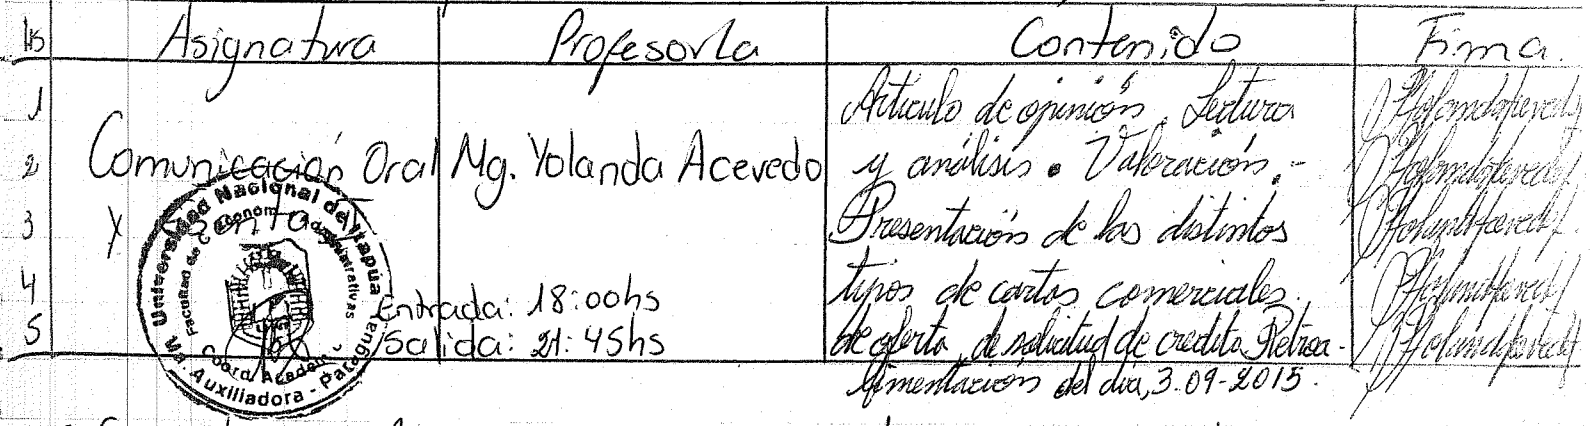 Hs Asignatura Profesor/a Contenido Firma.
1 Artículo de opinión. Lectura
2 Comunicación Oral Mg. Yolanda Acevedo y análisis. Valoración.-
3 y Escrita Presentación de los distintos
4 Entrada: 18:00hs tipos de cartas comerciales.
5 Salida: 21:45hs de oferta, de solicitud de credito. Retroa-
limentación del dia, 3-09-2015.
Universidad Nacional de Itapúa
Facultad de Administrativas
Coord. Academ
Ma. Auxiliadora - Paraguay